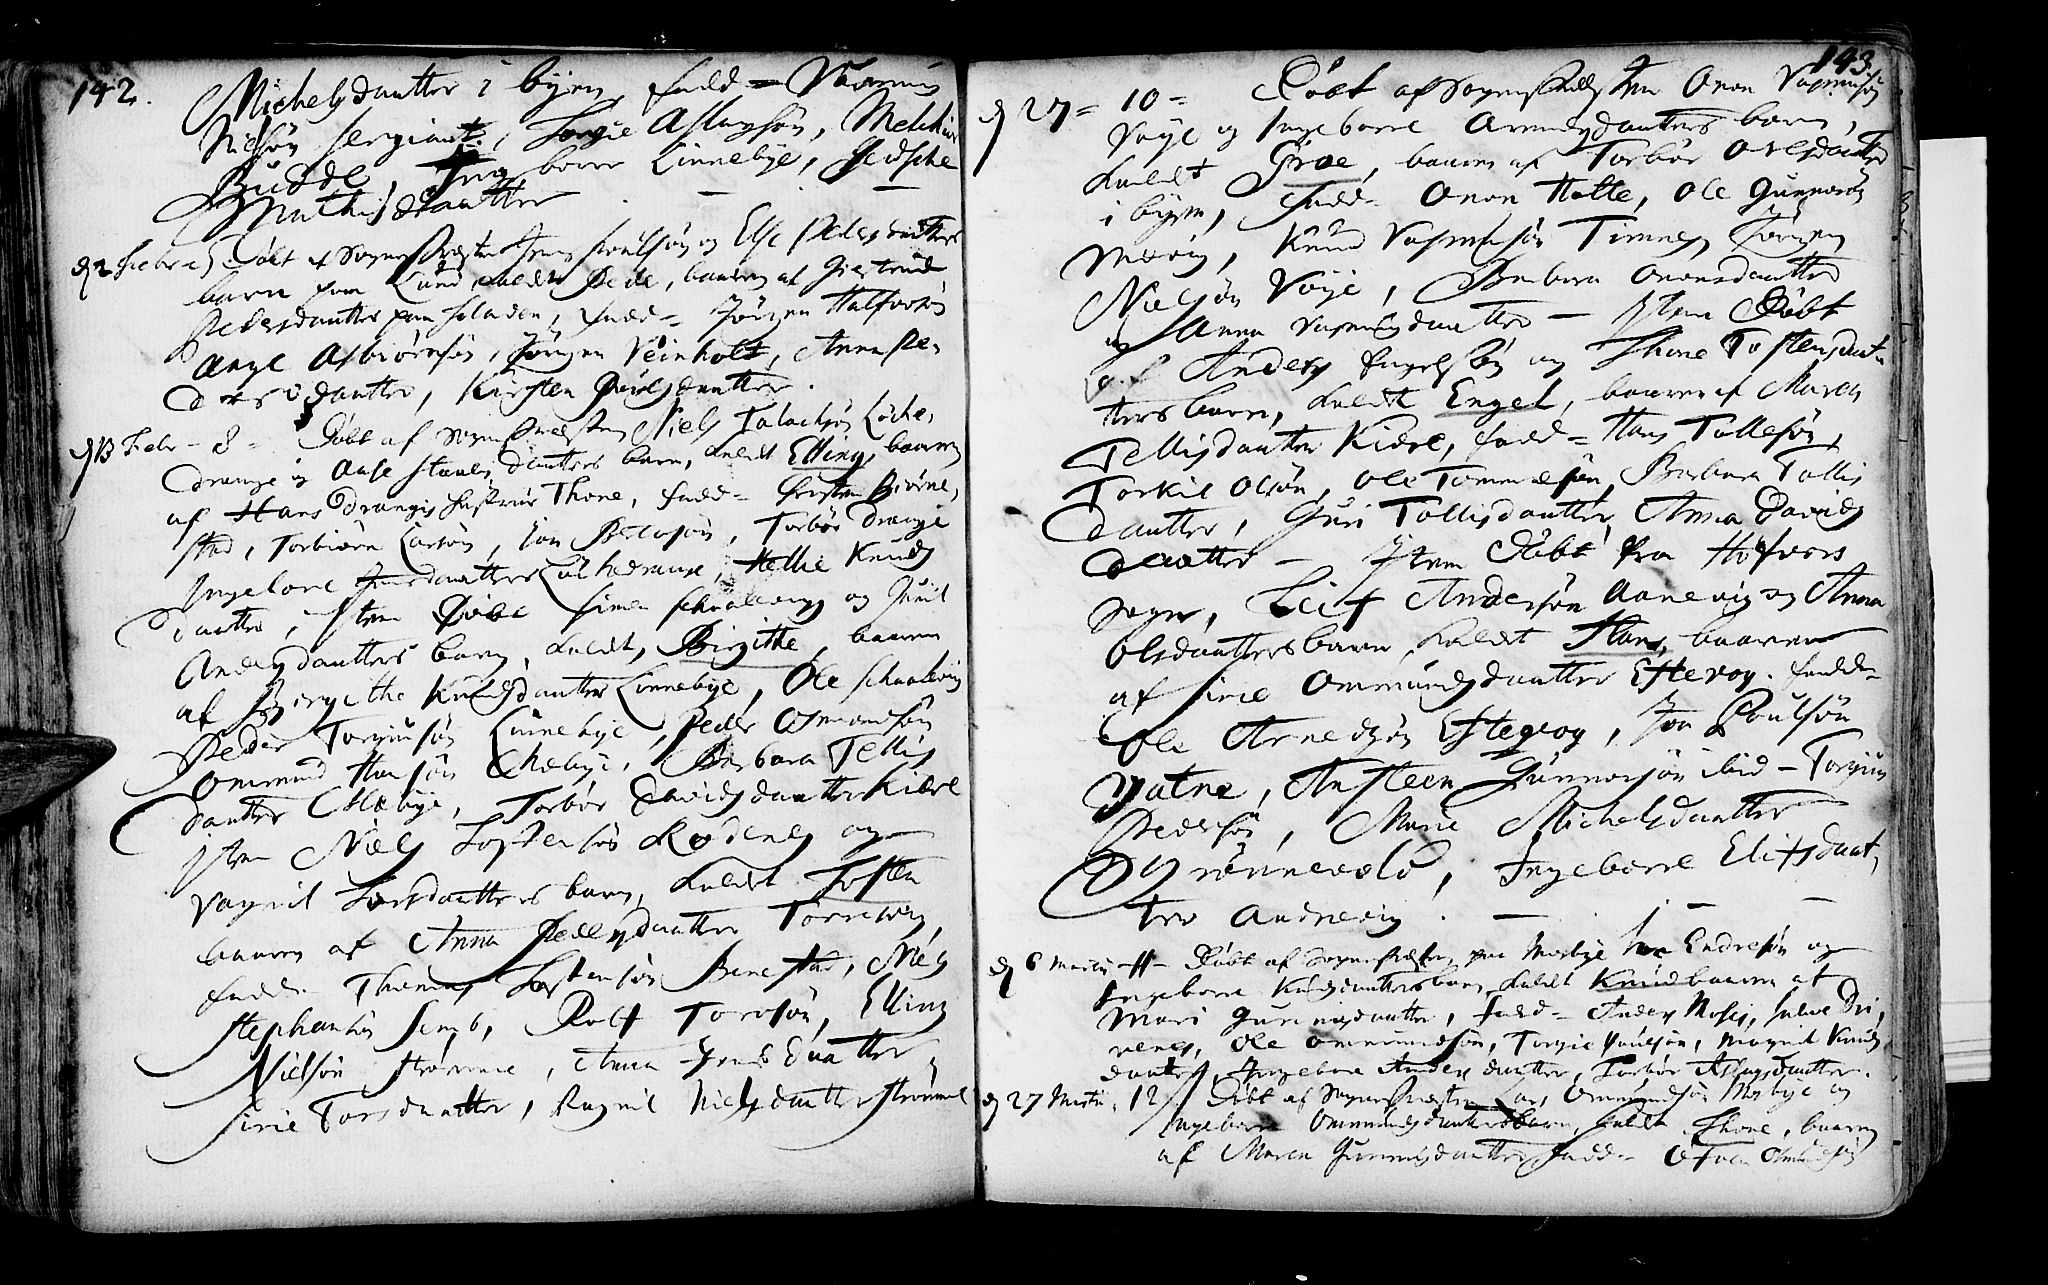 142.
Michelsdautter i byen, fadd = Rasmus
Nielsøn sergiant, Torgie Aslagsøn, Melchior
Budde, Ingborre Linnebye, Gidsche
Mathisdautter
d 2 Febr 5 Døbt af Sogne Presten Jens Poulsøn og Else Pedersdautters
barn paa Lund kaldet Pede, baaren af Giertrud
Pedersdautter paa Holden, fadd = Jørgen Halforsøn
Aage Asbiørnsøn, Jørgen Reinholt, Anna Pe,
dersdautter, Kirsten Poulsdautter.
d 13 Febr - 8 = Døbt af Sogne Presten Niels Talachsøn Løche,
drange og Aase Stauls dautters barn, kaldet Elling, baaren
af Hans Dranges Hustrue Thone, fadd = Christen Biørne,
stad, Torbiørn Larsøn, Jon Pedersøn, Torbør Drange
Ingeborre dautter Løchedrange, Hellie Knuds
dautter, Item Døbt Simen Schraaleving og Gunil
Andersdautters barn, kaldet, Birgithe, baaren
af Byrgithe Knudsdautter Linnebye, Ole Schraaleving
Peder Torgiusøn Linnebye, Peder Osmundsøn
Ommund Hansøn Echebye, Barbara Tellis
dautter Echebye, Torbør Davidsdautter Kiære
Item Niels Tostensøn Rødenes og
Ragnil Larsdautters barn, kaldet Tosten
baaren af Anna Pedersdautter Torreswig
fadd. Thomas Tostensøn Benestad, Niels
Stephansøn Semb, Rolf Torosøn, Elling
Nielsøn Strømme, Anna Jensdautter,
Sirie Torsdautter, Ragnil Nielsdautter Strømme
143.
d 27 = 10 = Døbt af Sogne Presten Onon Rasmusøn
Vøye og Ingeborre Arensdautters barn,
kaldet Groe, baaren af Torbør Olesdautter
i byen, fadd = Onon Holte, Ole Gunnersøn
Mosvig, Knud Rasmusøn Timnes, Jørgen
Nielsøn Vøye, Barbara Ononsdautter
og Anna Rasmusdautter — Item Døbt
af Anders Engelsøn og Thone Tostensdaut
ters barn, kaldet Engel, baaren af Maren
Tellisdautter Kiære, fadd = Hans Tollesøn,
Torkil Olsøn, Ole Tommesøn, Barbara Tollis
dautter, Guri Tollisdautter, Anna Davids
dautter — Item Døbt fra Høfvers
Sogn, Leif Andersøn Aanevig og Anna
Olsdautters barn kaldet Hans, baaren
af Sirie Ommundsdautter Effterøy. fadd=
Ole Arnedsøn Efterøy, Jon Poulsøn
Vatne, Ansteen Gunnersøn ibid - Torgius
Pedersøn, Marie Michelsdautter
Grønnevold, Ingeborre Elifsdaut,
ter Andnevig. —
d 6 Martii - 11 - Døbt af Sogne Presten paa Mosbye Endresøn og
Ingeborre Knudsdautters barn kaldet Knud baaren af
Mari Gurinisdautter, fadd = Anders Moseis, Salve Dri,
venes, Ole Ommundsøn, Torgie Poulsøn, Magnil Knuds
dautter, Ingeborre Anders dautter, Torbør Aslagsdautter.
d 27 Martii, 12 // Døbt af Sogne Presten Lars Ommundsøn Mosbye og
Ingeborre Ommundsdautters barn, kaldet Thone, baaren
af Maren Gurinisdautter fadd = Ofven Omundsøn